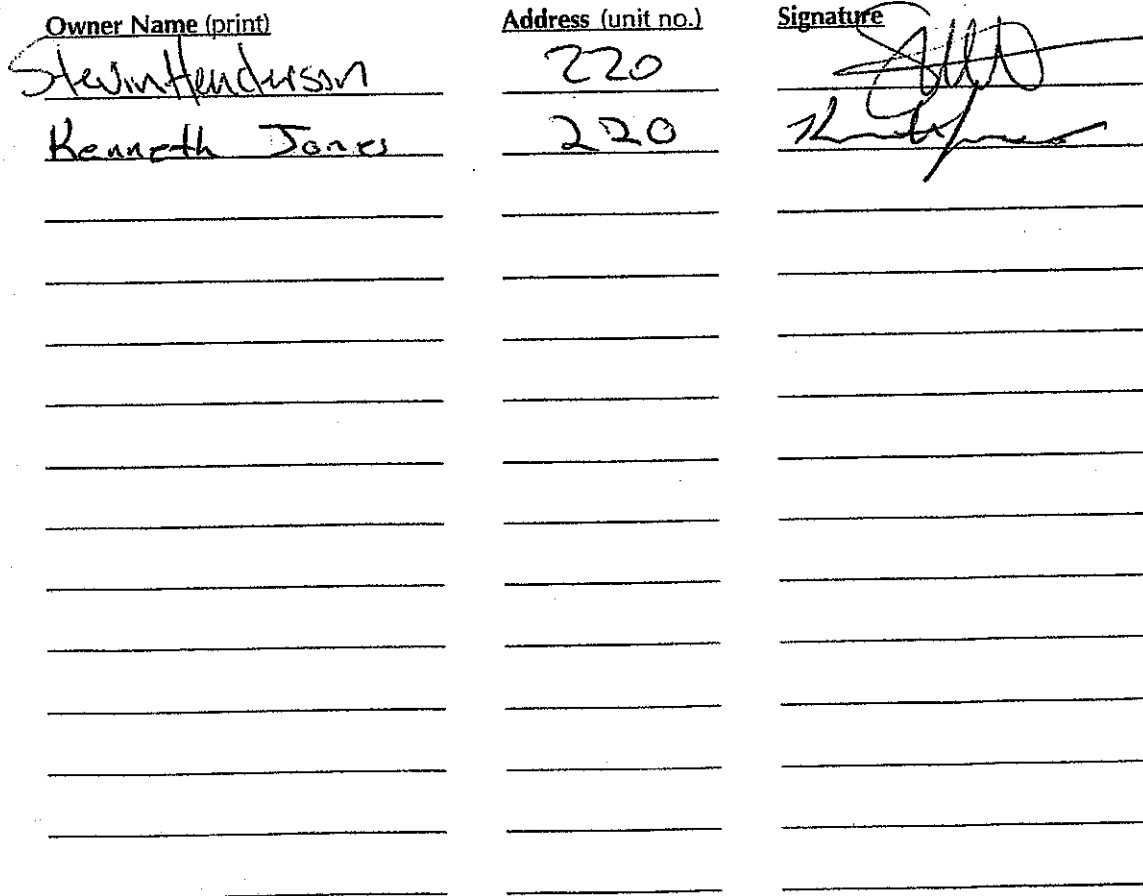 Owner Name (print) Address (unit no.) Signature
Stevin Henderson 220
Kenneth Jones 220